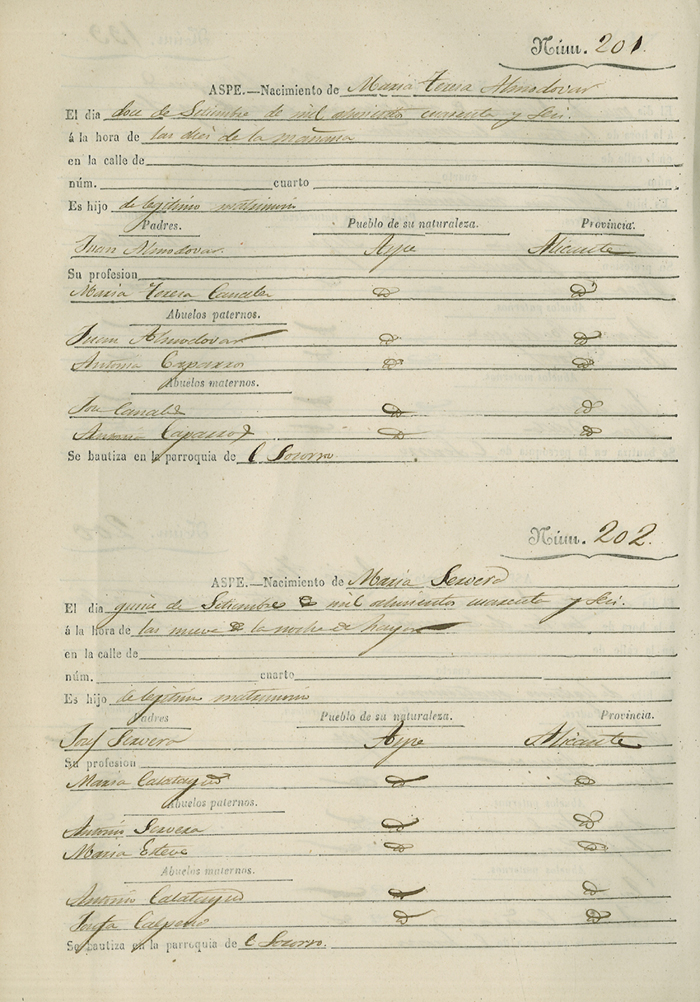 Núm. 201.
ASPE.—Nacimiento de Maria Teresa Almodovar
El dia doce de Setiembre de mil ochocientos cuarenta y seis.
á la hora de las dies de la mañana
en la calle de
núm. cuarto
Es hijo de legitimo matrimonio
Padres. Pueblo de su naturaleza. Provincia.
Juan Almodovar Aspe Alicante
Su profesion
Maria Teresa Canales id id
Abuelos paternos.
Juan Almodovar id id
Antonia Caparros id id
Abuelos maternos.
Jose Canales id id
Antonia Caparros id id
Se bautiza en la parroquia de l Socorro.
Núm. 202.
ASPE.—Nacimiento de Maria Servero
El dia quince de Setiembre de mil ochocientos cuarenta y seis.
á la hora de las nueve de la noche de
en la calle de
núm. cuarto
Es hijo de legitimo matrimonio
Padres Pueblo de su naturaleza. Provincia.
José Servero Aspe Alicante
Su profesion
Maria Calatayud id id
Abuelos paternos.
Antonio Servero id id
Maria Esteve id id
Abuelos maternos.
Antonio Calatayud id id
id id
Se bautiza en la parroquia de l Socorro.